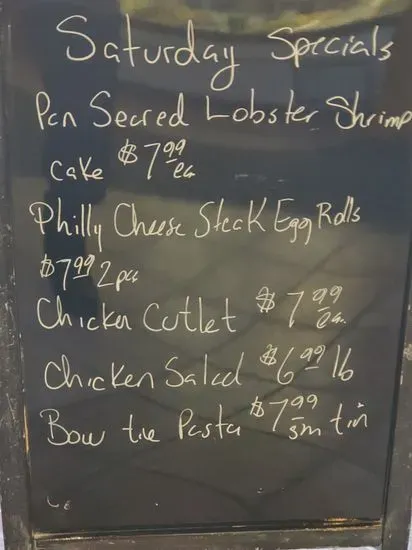 Saturday Specials
Pan Seared Lobster Shrimp
cake $7.99 ea
Philly Cheese Steak Egg Rolls
$7.99 2 pcs
Chicken Cutlet $7.99 ea.
Chicken Salad $6.99 lb
Bow tie Pasta $7.99 sm tin